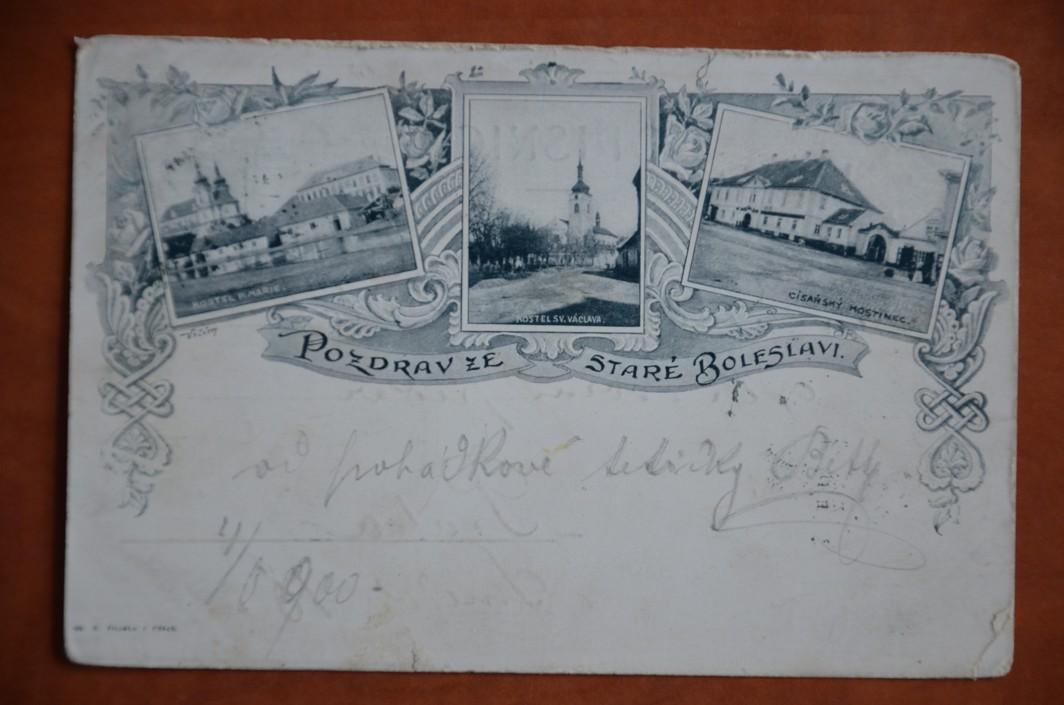 KOSTEL P. MARIE.
KOSTEL SV. VÁCLAVA.
CÍSAŘSKÝ HOSTINEC.
POZDRAV ZE STARÉ BOLESLAVI.
od pohádkové tetičky Betty
4/8 900.